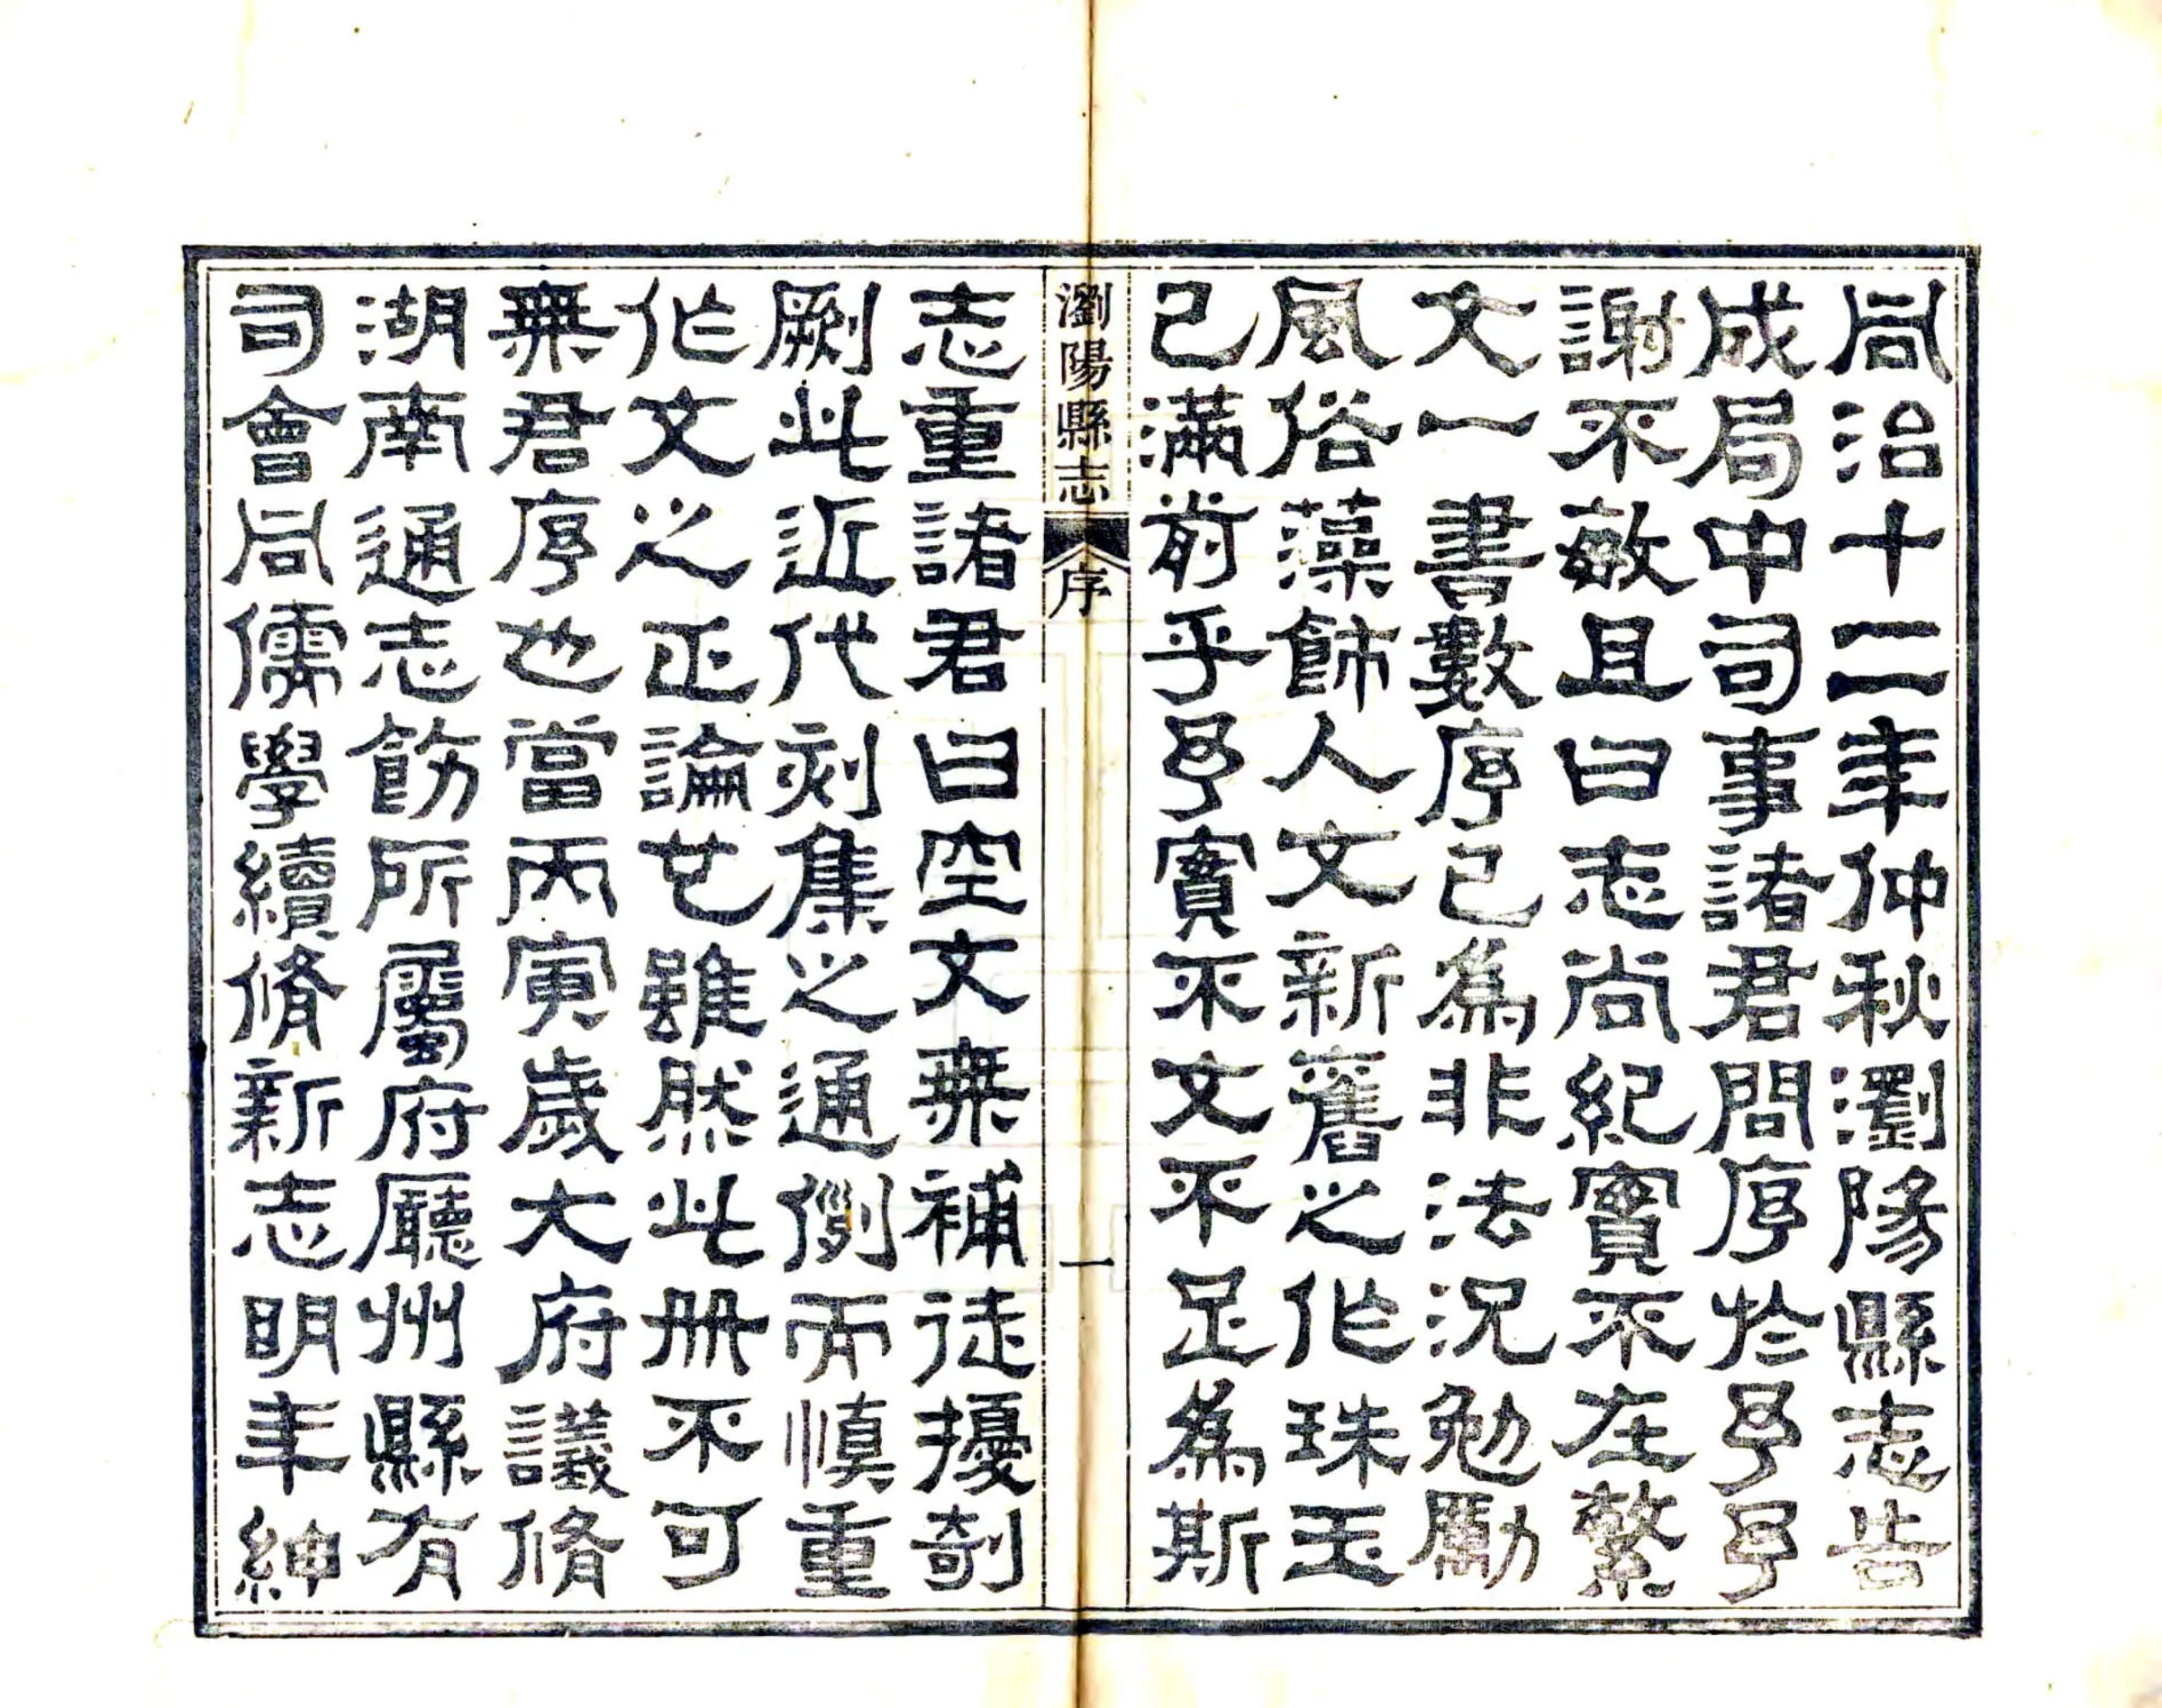 同治十二年仲秋瀏陽縣志告
成局中司事諸君問序於予予
謝不敏且曰志尚紀實不在繁
文一書數序已為非法況勉勵
風俗藻飾人文新舊之作珠玉
已滿前乎予實不文不足為斯
瀏陽縣志 序 一
志重諸君曰空文無補徒擾剞
劂此近代刻集之通例而慎重
作文之正論也雖然此冊不可
無君序也當丙寅歲大府議脩
湖南通志飭所屬府廳州縣有
司會同儒學續脩新志明年紳